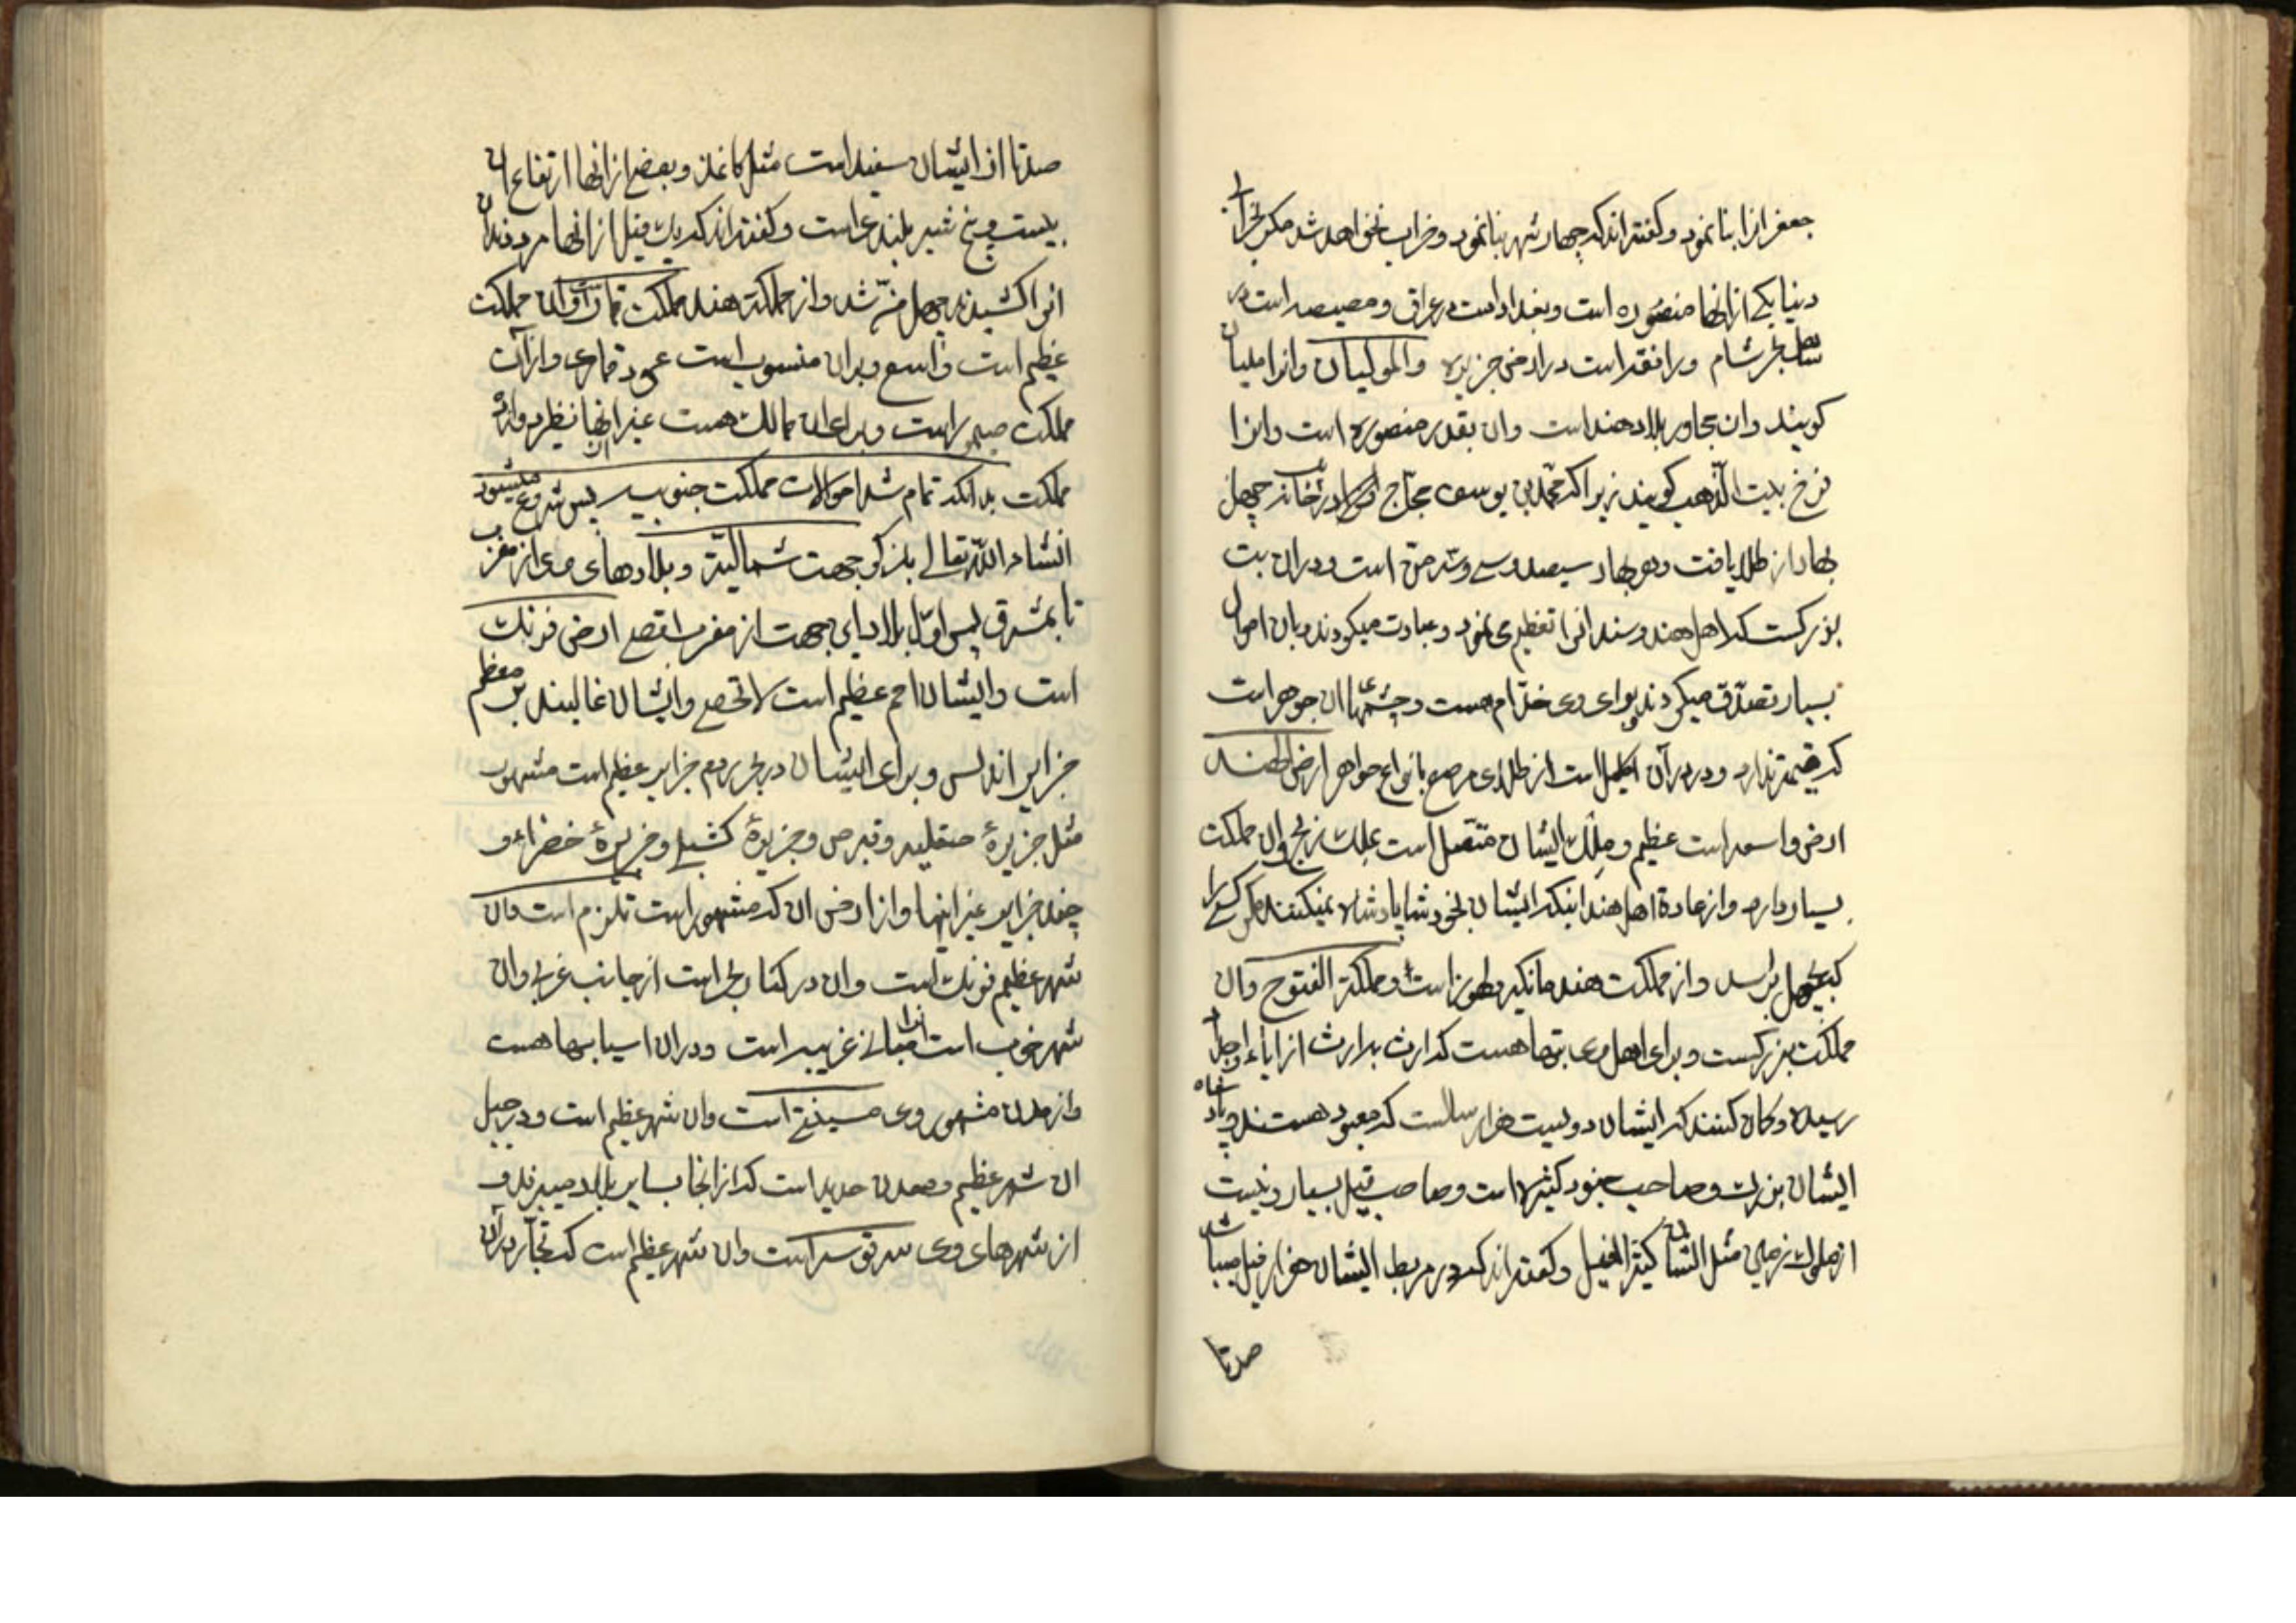 جعفر انرا بنا نمود و کفته‌اند که چهار شهر بنا نمود و خراب نخواهد شد مکر بخراب
دنیا یکی از انها منصوره است و بغداد است در عراق و مصیصه است در
ساحل بحر شام و رافقه است در ارض جزیره والمولیان وانرا ملیان
کویند وان مجاور بلاد هند است وان بقدر منصوره است وانرا
فرخ بیت الذهب کویند زیرا که محمد بن یوسف حجاج در خانه چهل
بهار از طلا یافت و هر بهار سیصد و سی و سه من است و دران بت
بزرکست که اهل هند و سند انرا تعظیم می نمود و عبادت میکردند و بان اموال
بسیار تصدق میکردند و برای وی خدام هست و چشمهای ان جوهر است
که قیمة ندارد و در سر آن اکلیل است از طلای مرصع بانواع جواهر ارض الهند
ارض واسعه است عظیم و ملک ایشان متصل است بملک زنج وان مملکت
بسیار دارد و از عادة اهل هند اینکه ایشان بخود شان پادشاه نمیکنند مکر کسی را
که بچهل برسد و از مملکت هند مانکیر و طهورز است و مملکة الفتوح وان
مملکت بزرکست و برای اهل وی بتها هست که ارث بدارث از اباء و اجداد
رسیده و کمان کنند که ایشان دویست هزار سالست که معبود هستند و پادشاه
ایشان بزرک و صاحب جنود کثیره است و صاحب فیل بسیار و نیست
از ملوک زمین مثل ایشان کثیر الفیل و کفته‌اند که در مربط ایشان هزار فیل میباشد
صدتا
صدتا از ایشان سفید است مثل کاغذ و بعضی از انها ارتفاع ان
بیست و پنج شبر بلندی است و کفته‌اند که یک فیل از انها مرد دندان
انرا کشیدند چهل من شد و از مملکة هند مملکت قمار است وان مملکت
عظیم است و واسع و بدان منسوب است عود قماری و از آن
مملکت صیمور است و برای ان ممالک هست غیر انها نظر دارد ان
مملکت بدانکه تمام شد احوالات مملکت جنوب پس شروع میشود
انشاء الله تعالی بذکر جهت شمالیة و بلادهای وی از مغرب
تا بمشرق پس اول بلاد این جهت از مغرب اقصی ارض فرنک
است وایشان امم عظیم است لا تحصی وایشان غالبند بر معظم
جزایر اندلس و برای ایشان در بحر روم جزایر عظیم است مشهور
مثل جزیرهٔ صقلیه و قبرص و جزیرهٔ کشیلی و جزیرهٔ خضراء و
چند جزایر غیر اینها و از ارض ان که مشهور است تلزم است وان
شهر عظیم فرنک است وان در کنار بحر است از جانب غربی وان
شهر خوب است انرا مبانی غریبه است و دران اسیابها هست
و از مدن مشهور وی مسینی است وان شهر عظیم است و در جبل
ان شهر عظیم معدن حدید است که از انجا بسایر بلاد میبرند و
از شهرهای وی سرقوسه است وان شهر عظیم است که تجار دران